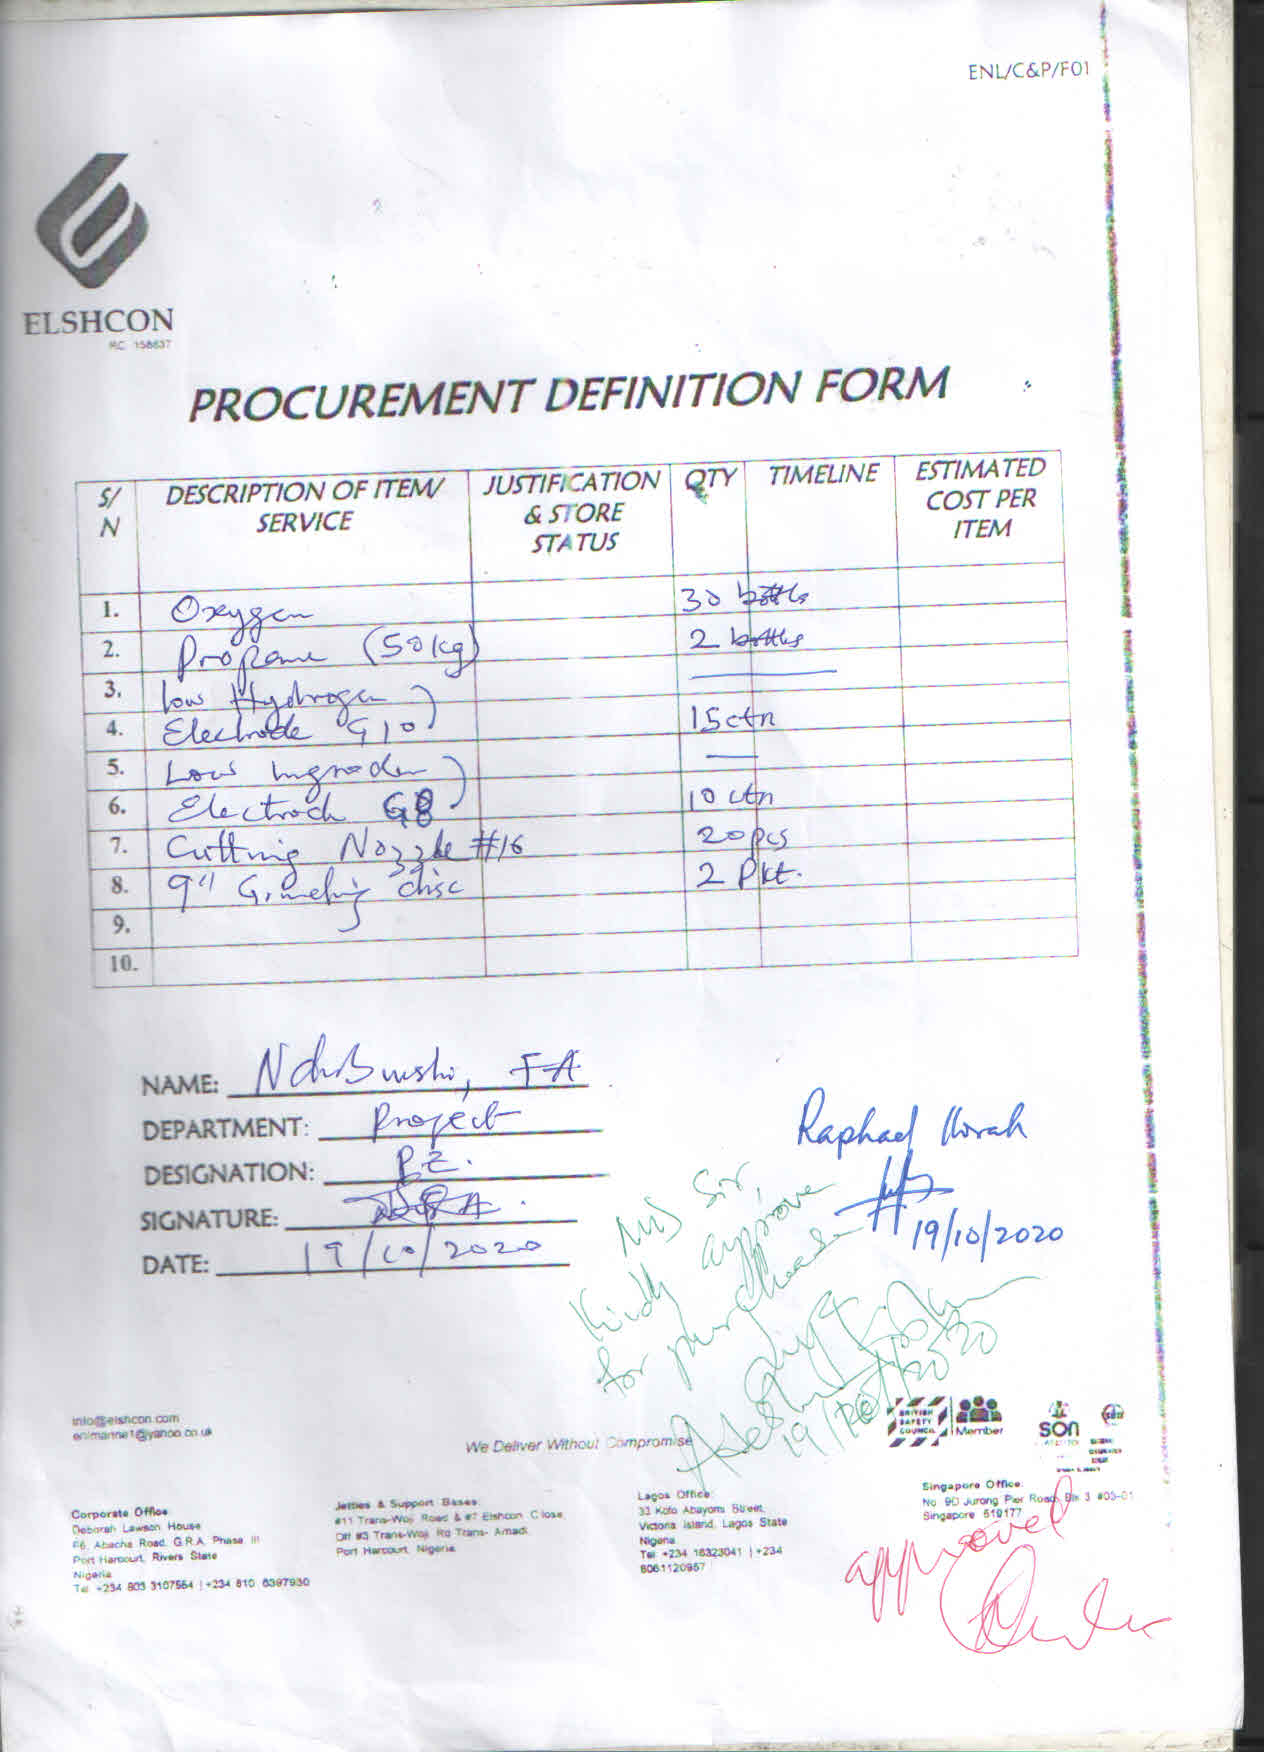 ENL/C&P/F01
ELSHCON
RC 158837
PROCUREMENT DEFINITION FORM
S/N DESCRIPTION OF ITEM/ SERVICE JUSTIFICATION & STORE STATUS QTY TIMELINE ESTIMATED COST PER ITEM
1. Oxygen 30 bottls
2. Propane (50kg) 2 bottls
3. Low Hydrogen )
4. Electrode G10 15ctn
5. Low )
6. Electrod G8 10 ctn
7. Cutting Nozzle #16 20pcs
8. 9" Grinding disc 2 Pkt.
9.
10.
NAME:
DEPARTMENT: Project
DESIGNATION: P.E.
SIGNATURE:
DATE: 19/10/2020
Raphael
19/10/2020
MJ Sir,
Kindly approve
for purchase
19/10/2020
info@elshcon.com
enlmarine1@yahoo.co.uk
We Deliver Without Compromise
BRITISH SAFETY COUNCIL Member
SON
Corporate Office
Deborah Lawson House
F6, Abacha Road, G.R.A. Phase III
Port Harcourt, Rivers State
Nigeria
Tel +234 803 3107554 | +234 810 6397930
Jetties & Support Bases:
#11 Trans-Woji Road & #7 Elshcon Close
Off #3 Trans-Woji Rd Trans- Amadi,
Port Harcourt, Nigeria
Lagos Office:
33 Kofo Abayomi Street,
Victoria Island, Lagos State
Nigeria
Tel +234 18323041 | +234
8061120957
Singapore Office:
No 9D Jurong Pier Road, Blk 3 #03-01
Singapore 619177
approved